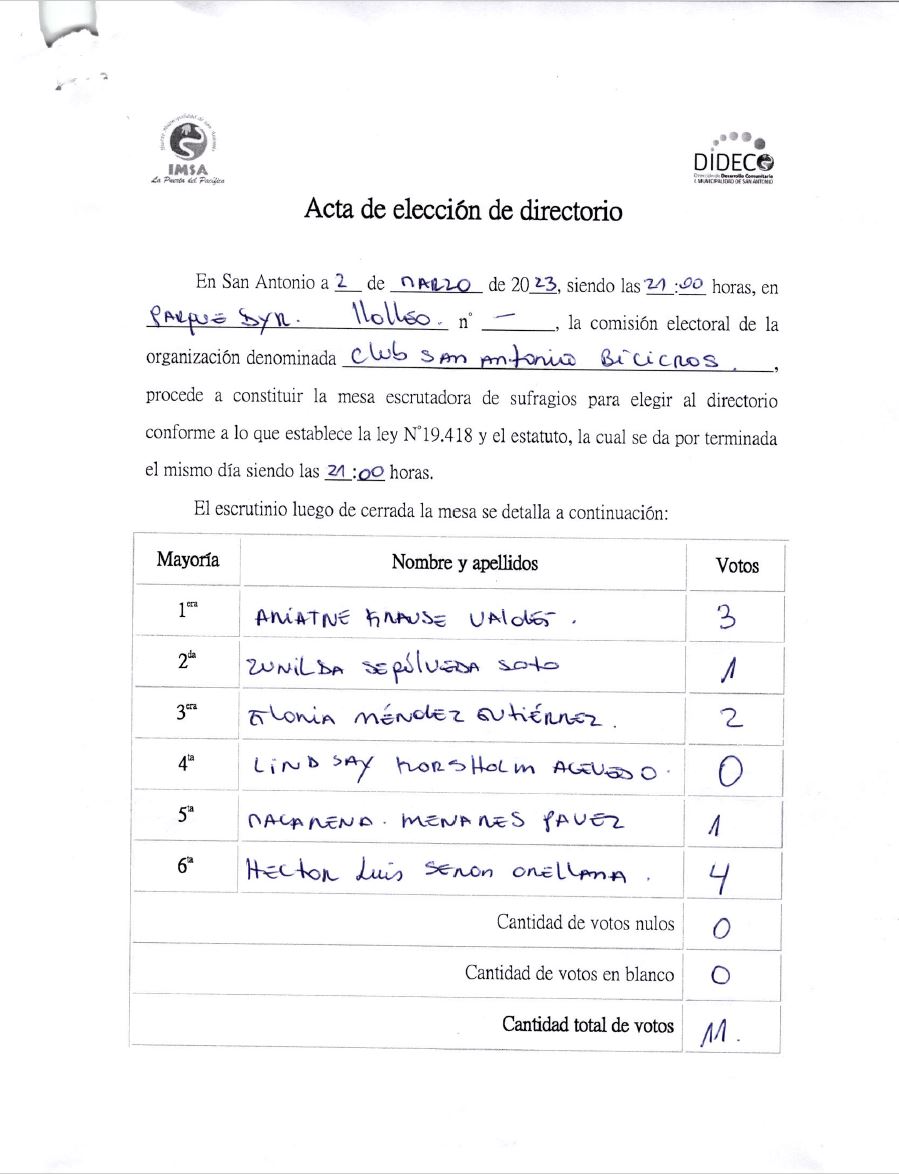 IMSA
La Puerta del Pacífico
DIDECO
Dirección de Desarrollo Comunitario
I. MUNICIPALIDAD DE SAN ANTONIO
Acta de elección de directorio
En San Antonio a 2 de MARZO de 2023, siendo las 21:00 horas, en
PARQUE DYR. Llolleo. n° —, la comisión electoral de la
organización denominada Club SAN Antonio BiCiCROS.,
procede a constituir la mesa escrutadora de sufragios para elegir al directorio
conforme a lo que establece la ley N°19.418 y el estatuto, la cual se da por terminada
el mismo día siendo las 21:00 horas.
El escrutinio luego de cerrada la mesa se detalla a continuación:
Mayoría Nombre y apellidos Votos
1era ARIATNE KRAUSE VAldéS. 3
2da ZUNILDA SEPÚLVEDA SOTO 1
3era GLORIA MÉNDEZ GUTIÉRREZ. 2
4ta LINDSAY KORSHOLM ACEVEDO. 0
5ta MACARENA. MENARES PAVEZ 1
6ta HECTOR Luis SERON ORELLANA. 4
Cantidad de votos nulos 0
Cantidad de votos en blanco 0
Cantidad total de votos 11.